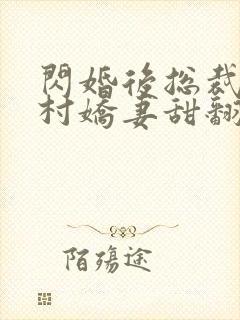 閃婚後總裁
村嬌妻甜翻
陌殤途